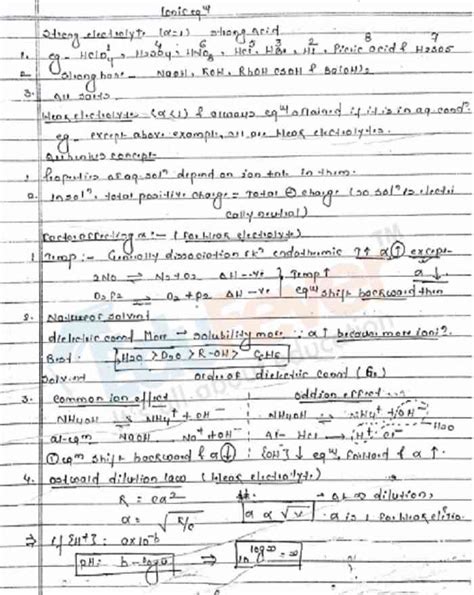 Ionic eqm
Strong electrolyte (α=1) strong acid
1. eg - HClO4, H2SO4, HNO3, HCl, HBr, HI, Picric acid & H2SO5
2. Strong base - NaOH, KOH, RbOH CsOH & Ba(OH)2
3. All salts
Weak electrolyte (α<1) & always eqm attained if it is in aq. cond.
eg - except above example, all are weak electrolytes.
Arrhenius concept
1. Properties of aq. soln depend on ion tak in them.
2. In soln, total positive charge = Total ⊖ charge (so soln is electri
cally neutral)
Factor affecting α :- (for weak electrolyte)
1. Temp :- Generally dissociation endothermic T↑ α↑ except
2NO ⇌ N2+O2 ΔH -ve Temp ↑ α ↓
O2F2 ⇌ O2 + F2 ΔH -ve eqm shift backward then
2. Nature of solvent
dielectric const More → solubility more ∵ α↑ because more ions.
Best H2O > D2O > R-OH > C6H6
Solvent order of dielectric const
3. common ion effect oddion effect
NH4OH ⇌ NH4+ + OH- NH4OH ⇌ NH4+ + OH-
at eqm NaOH Na+ + OH- At- HCl → H+ Cl- H2O
eqm shift backward & α ↓ [OH-] ↓ eqm forward & α ↑.
4. ostwald dilution law (weak electrolyte)
K = cα2 → At ∞ dilution,
α = √K/c α ∝ √V α is 1 for weak
⇒ if [H+] = a×10-b
pH = b - log a ⇒